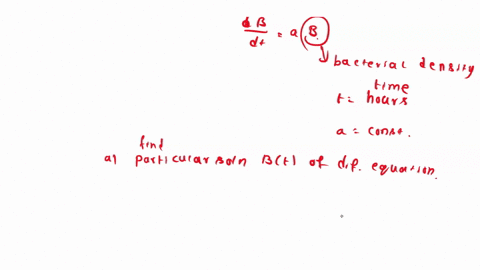 dB/dt = a B.
bacterial density
time
t = hours
a = const.
find
a) particular soln B(t) of dif. equation.